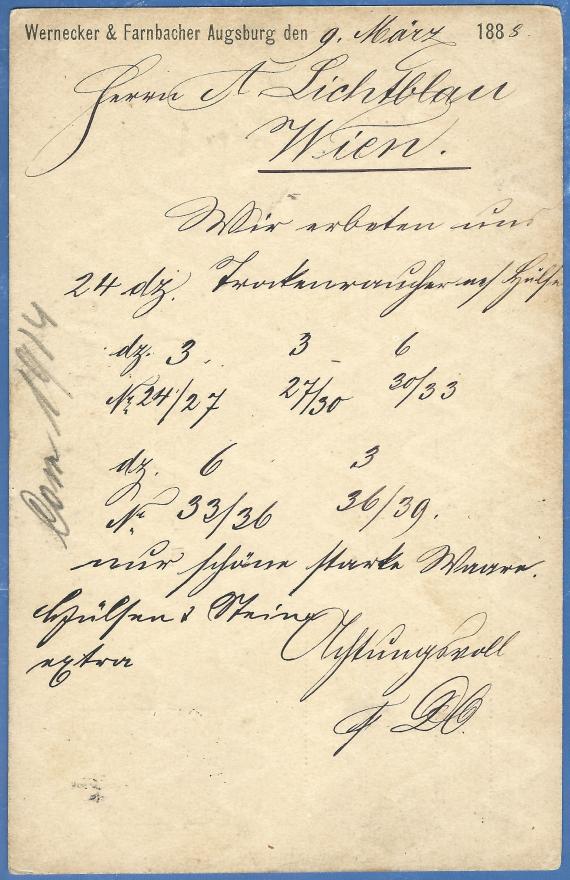 Wernecker & Farnbacher Augsburg den 9. März 1888.
Herrn A Lichtblau
Wien.
Wir erbeten uns
24 dz. Trockenraucher
dz. 3. 3 6
No 24/27 27/30 30/33
dz. 6 3
No 33/36 36/39.
nur schöne starke Waare.
Hülsen & Steine
extra
Achtungsvoll
1914